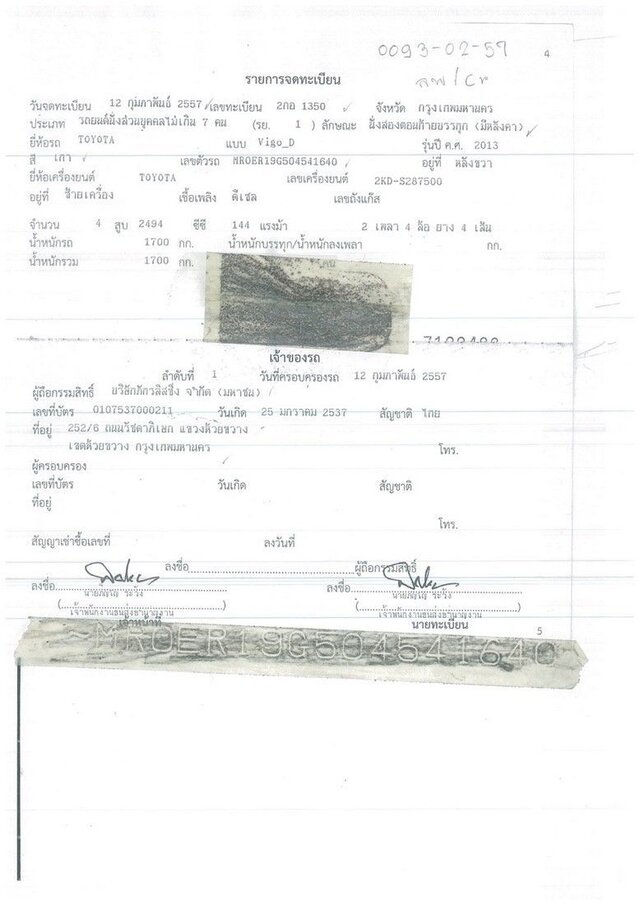 0093-02-57
4
รายการจดทะเบียน
วันจดทะเบียน 12 กุมภาพันธ์ 2557 เลขทะเบียน 2กอ 1350 จังหวัด กรุงเทพมหานคร
ประเภท รถยนต์นั่งส่วนบุคคลไม่เกิน 7 คน (รย. 1 ) ลักษณะ นั่งสองตอนท้ายบรรทุก (มีหลังคา)
ยี่ห้อรถ TOYOTA แบบ Vigo_D รุ่นปี ค.ศ. 2013
สี เทา เลขตัวรถ MROER19G504541640 อยู่ที่ หลังขวา
ยี่ห้อเครื่องยนต์ TOYOTA เลขเครื่องยนต์ 2KD-S287500
อยู่ที่ ซ้ายเครื่อง เชื้อเพลิง ดีเซล เลขถังแก๊ส
จำนวน 4 สูบ 2494 ซีซี 144 แรงม้า 2 เพลา 4 ล้อ ยาง 4 เส้น
น้ำหนักรถ 1700 กก. น้ำหนักบรรทุก/น้ำหนักลงเพลา กก.
น้ำหนักรวม 1700 กก. คน
เจ้าของรถ
ลำดับที่ 1 วันที่ครอบครองรถ 12 กุมภาพันธ์ 2557
ผู้ถือกรรมสิทธิ์ จำกัด (มหาชน)
เลขที่บัตร 0107537000211 วันเกิด 25 มกราคม 2537 สัญชาติ ไทย
ที่อยู่ 252/6 ถนนรัชดาภิเษก แขวงห้วยขวาง
เขตห้วยขวาง กรุงเทพมหานคร โทร.
ผู้ครอบครอง
เลขที่บัตร วันเกิด สัญชาติ
ที่อยู่
โทร.
สัญญาเช่าซื้อเลขที่ ลงวันที่
ลงชื่อ ผู้ถือกรรมสิทธิ์
ลงชื่อ ลงชื่อ
เจ้าพนักงานขนส่งชำนาญงาน เจ้าพนักงานขนส่งชำนาญงาน
เจ้าหน้าที่ นายทะเบียน 5
MROER19G504541640